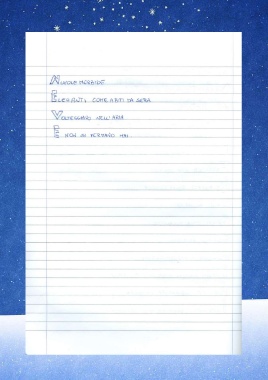 NUVOLE MORBIDE
ELEGANTI COME ABITI DA SERA
VOLTEGGIANO NELL'ARIA
E NON SI FERMANO MAI